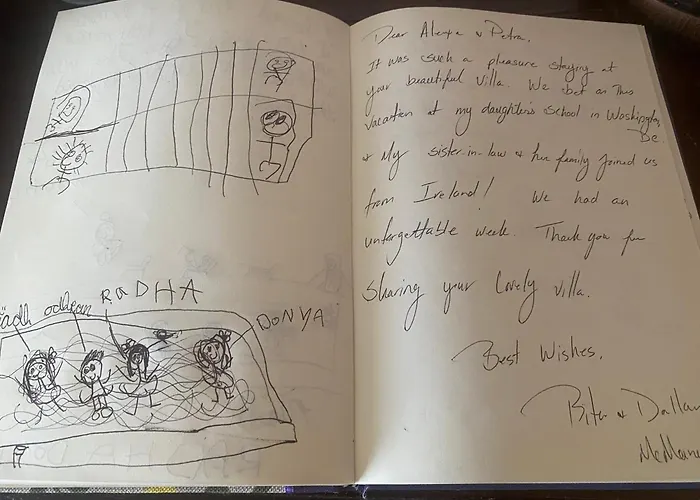 RADHA
DONYA
Dear Alexa & Petra,
It was such a pleasure staying at
your beautiful Villa. We bet on this
vacation at my daughter's school in Washington,
DC.
& My sister-in-law & her family joined us
from Ireland! We had an
unforgettable week. Thank you for
Sharing your lovely villa.
Best Wishes,